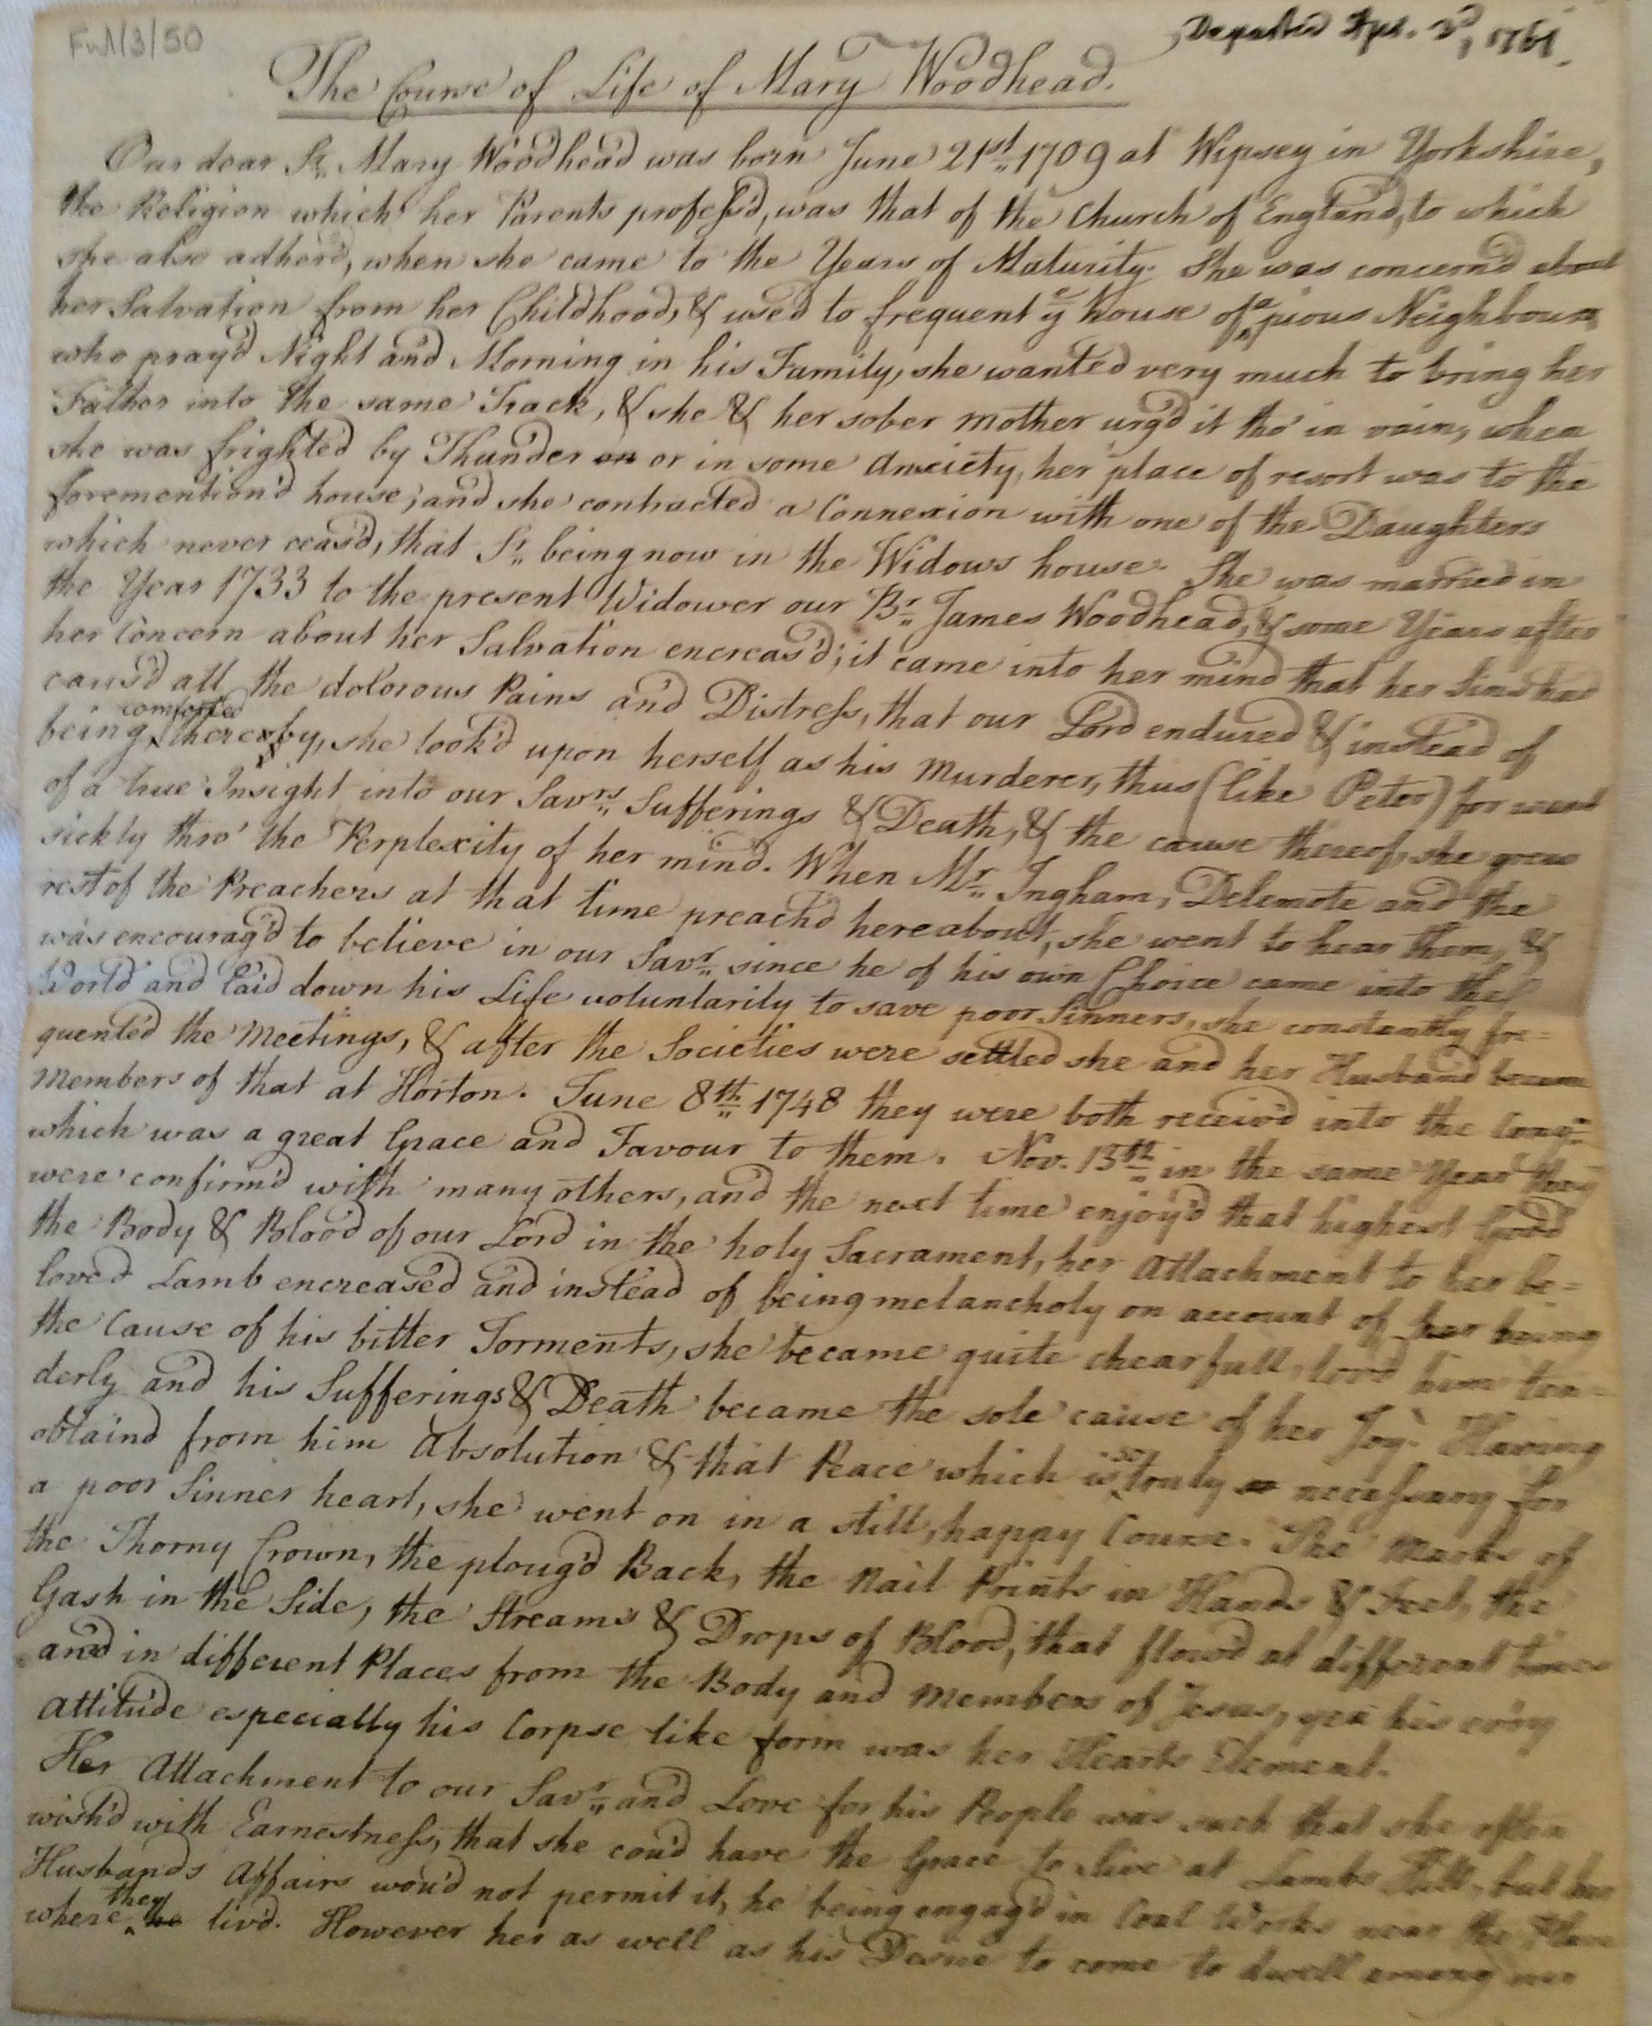 Ful/3/50
Departed Apr. 2d, 1761.
The Course of Life of Mary Woodhead.
Our dear Sr. Mary Woodhead was born June 21st 1709 at Wipsey in Yorkshire,
the Religion which her Parents profess'd, was that of the Church of England, to which
she also adher'd, when she came to the Years of Maturity. She was concern'd about
her Salvation from her Childhood, & used to frequent ye house of a pious Neighbour
who pray'd Night and Morning in his Family, she wanted very much to bring her
Father into the same Track, & she & her sober mother urg'd it tho' in vain, when
she was frighted by Thunder or in some Anxiety, her place of resort was to the
foremention'd house; and she contracted a Connexion with one of the Daughters
which never ceas'd, that Sr. being now in the Widows house. She was married in
the Year 1733 to the present Widower our Br. James Woodhead, & some Years after
her Concern about her Salvation encreas'd; it came into her mind that her Sins had
caus'd all the dolorous Pains and Distress, that our Lord endured & instead of
being comforted thereby, she look'd upon herself as his Murderer, thus (like Peter) for want
of a true Insight into our Savrs. Sufferings & Death, & the cause thereof, she grew
sickly thro' the Perplexity of her mind. When Mr. Ingham, Delemote and the
rest of the Preachers at that time preach'd hereabout, she went to hear them, &
was encourag'd to believe in our Savr. since he of his own Choice came into the
World and laid down his Life voluntarily to save poor Sinners, she constantly fre=
quented the Meetings, & after the Societies were settled she and her Husband became
Members of that at Horton. June 8th 1748 they were both receiv'd into the Congn.
which was a great Grace and Favour to them. Nov. 13th in the same Year they
were confirm'd with many others, and the next time enjoy'd that highest Good
the Body & Blood of our Lord in the holy Sacrament, her Attachment to her be=
loved Lamb encreased and instead of being melancholy on account of her being
the Cause of his bitter Torments, she became quite chearfull, lov'd him ten=
derly and his Sufferings & Death became the sole cause of her Joy. Having
obtain'd from him Absolution & that Peace which is so truly necessary for
a poor Sinner heart, she went on in a still, happy Course. The Marks of
the Thorny Crown, the ploug'd Back, the Nail Prints in Hands & Feet, the
Gash in the Side, the Streams & Drops of Blood, that flow'd at different times
and in different Places from the Body and Members of Jesus, yea his ev'ry
Attitude especially his Corpse like form was her Hearts Element.
Her Attachment to our Savr. and Love for his People was such that she often
wish'd with Earnestness, that she cou'd have the Grace to live at Lambs Hill, but her
Husbands Affairs wou'd not permit it, he being engag'd in Coal Works near the Place
where they liv'd. However her as well as his Desire to come to dwell among us